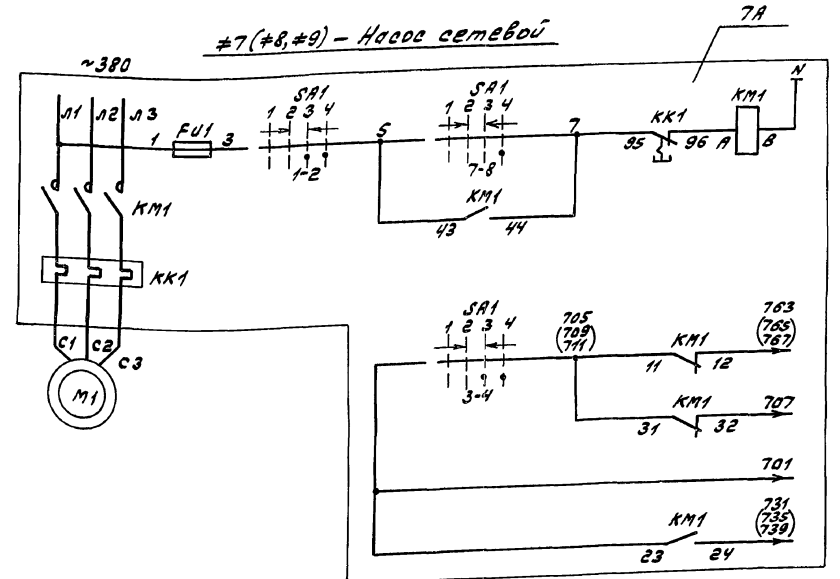 ≠7(≠8,≠9) – Насос сетевой
7А
~380
Л1 Л2 Л3
1 FU1 3
SA1
1 2 3 4
1-2
5
SA1
1 2 3 4
7-8
7
KK1
95 96
KM1
A B
N
KM1
43 44
KM1
KK1
C1 C2 C3
M1
SA1
1 2 3 4
3-4
705
(709
711)
KM1
11 12
763
(765
767)
KM1
31 32
707
701
KM1
23 24
731
(735
739)